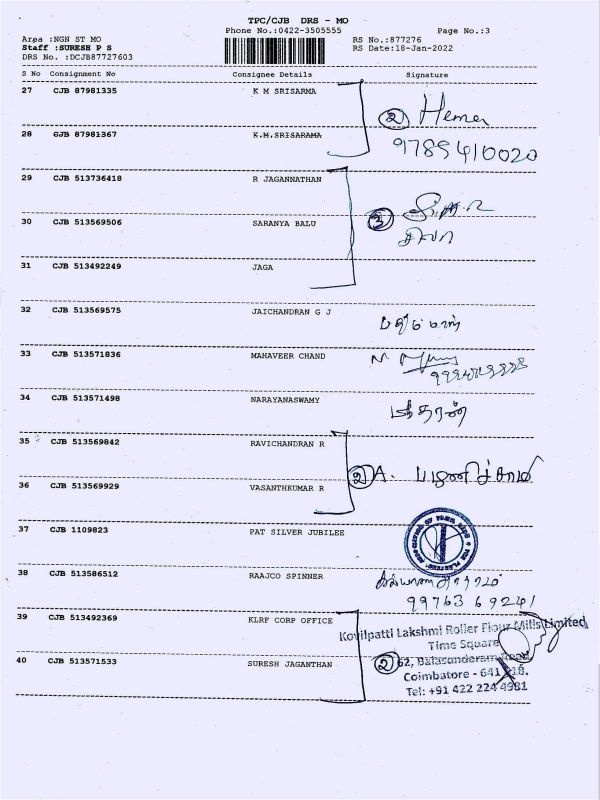 TPC/CJB DRS - MO
Phone No.:0422-3505555 Page No.:3
Area :NGN ST MO RS No.:877276
Staff :SURESH P S RS Date:18-Jan-2022
DRS No. :DCJB87727603
S No Consignment No Consignee Details Signature
27 CJB 87981335 K M SRISARMA
② Hema
28 CJB 87981367 K.M.SRISARAMA
9789410020
29 CJB 513736418 R JAGANNATHAN
30 CJB 513569506 SARANYA BALU ③
31 CJB 513492249 JAGA
32 CJB 513569575 JAICHANDRAN G J
33 CJB 513571836 MAHAVEER CHAND
34 CJB 513571498 NARAYANASWAMY
35 CJB 513569842 RAVICHANDRAN R
② A. பழனிச்சாமி
36 CJB 513569929 VASANTHKUMAR R
37 CJB 1109823 PAT SILVER JUBILEE
38 CJB 513586512 RAAJCO SPINNER
99763 69241
39 CJB 513492369 KLRF CORP OFFICE
Kovilpatti Lakshmi Roller Flour Mills Limited
Time Square
40 CJB 513571533 SURESH JAGANTHAN ② 62, Balasundaram Road
Coimbatore - 641 018.
Tel: +91 422 224 4981